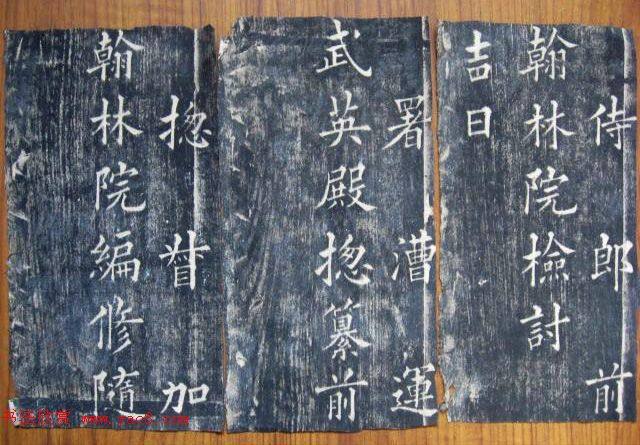 侍郎前
翰林院檢討
吉日
署漕運
武英殿揔纂前
揔督加
翰林院編修隨